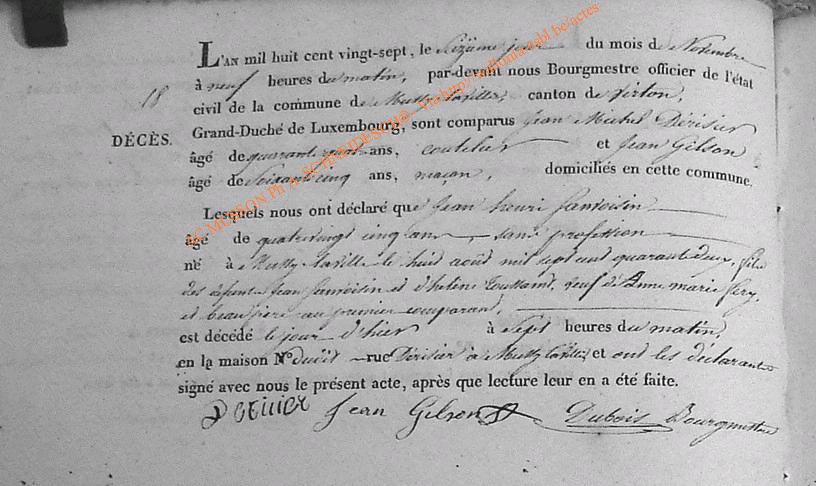 L'AN mil huit cent vingt-sept, le Sizième jour du mois de Novembre
18
à neuf heures du matin, par-devant nous Bourgmestre officier de l'état
civil de la commune de Mussy-la-ville, canton de Virton,
DÉCÈS.
Grand-Duché de Luxembourg, sont comparus Jean Michel Dérisier
âgé de quarante quat ans, coutelier et Jean Gilson
âgé de Soixante cinq ans, maçon, domiciliés en cette commune.
Lesquels nous ont déclaré que Jean henri
âgé de quatrevingt cinq ans, sans profession
né à Mussy-laville le huit août mil sept cent quarante deux, fils
des défunts Jean et d'helene Toussaint, veuf d'Anne marie fery,
et beau père au premier comparant,
est décédé le jour d'hier à Sept heures du matin,
en la maison N° dudit rue Dérisier à Mussy laville, et ont les déclarants
signé avec nous le présent acte, après que lecture leur en a été faite.
Derisier Jean Gilson Dubois Bourgmestre